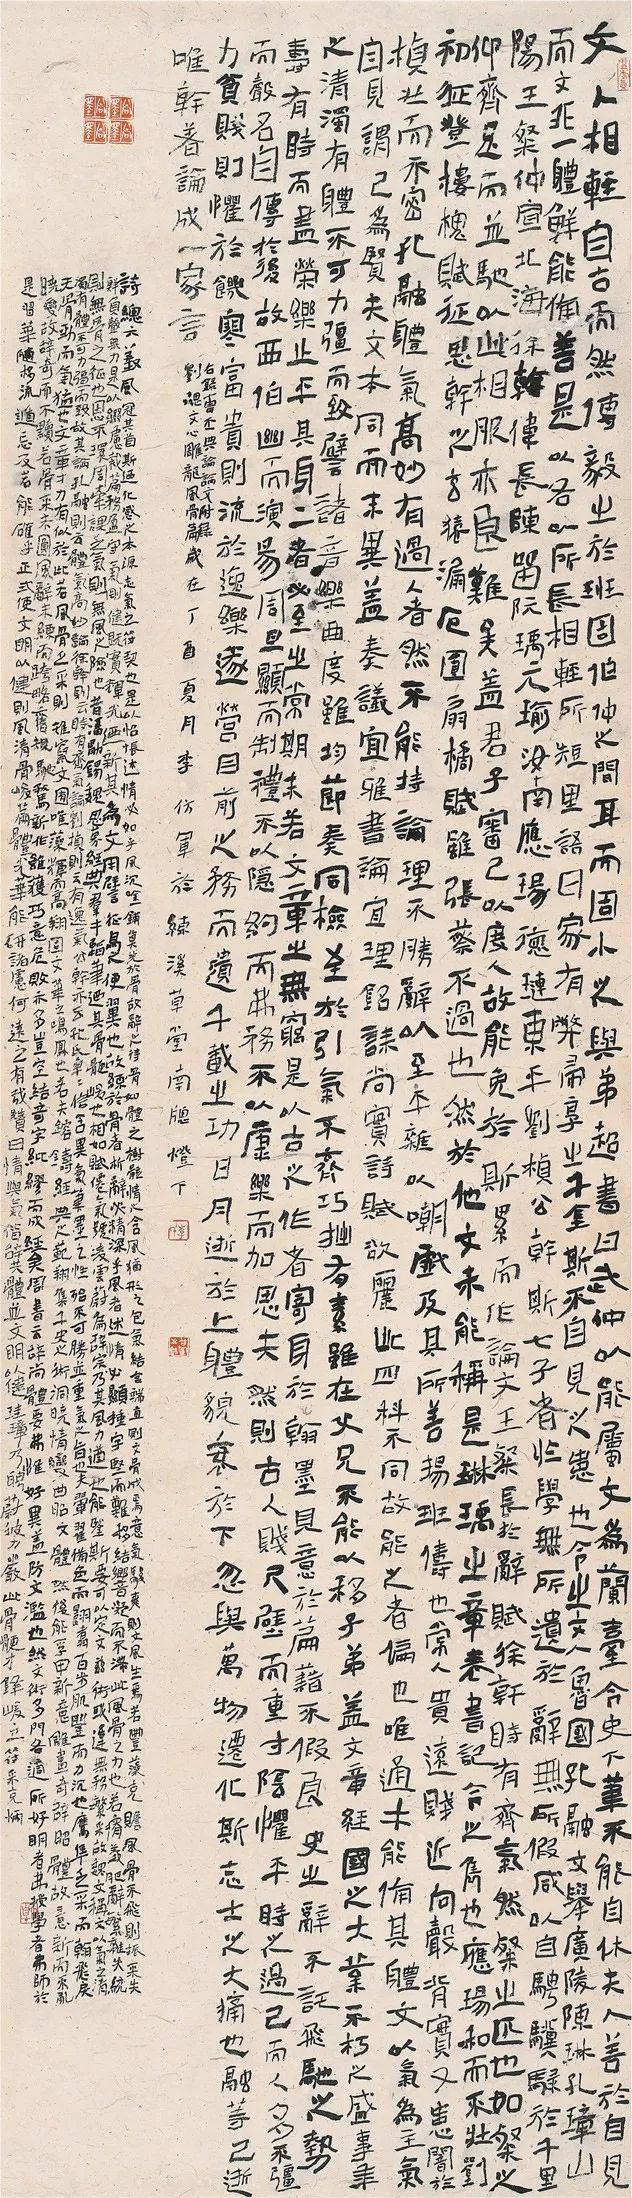 文人相輕自古而然傅毅之於班固伯仲之間耳而固小之與弟超書曰武仲以能屬文為蘭臺令史下筆不能自休夫人善於自見
而文非一體鮮能備善是以各以所長相輕所短里語曰家有弊帚享之千金斯不自見之患也今之文人魯國孔融文舉廣陵陳琳孔璋山
陽王粲仲宣北海徐幹偉長陳留阮瑀元瑜汝南應瑒德璉東平劉楨公幹斯七子者於學無所遺於辭無所假咸以自騁驥騄於千里
仰齊足而並馳以此相服亦良難矣蓋君子審己以度人故能免於斯累而作論文王粲長於辭賦徐幹時有齊氣然粲之匹也如粲之
初征登樓槐賦征思幹之玄猿漏卮圓扇橘賦雖張蔡不過也然於他文未能稱是琳瑀之章表書記今之雋也應瑒和而不壯劉
楨壯而不密孔融體氣高妙有過人者然不能持論理不勝辭以至乎雜以嘲戲及其所善揚班儔也常人貴遠賤近向聲背實又患闇於
自見謂己為賢夫文本同而末異蓋奏議宜雅書論宜理銘誄尚實詩賦欲麗此四科不同故能之者偏也唯通才能備其體文以氣為主氣
之清濁有體不可力彊而致譬諸音樂曲度雖均節奏同檢至於引氣不齊巧拙有素雖在父兄不能以移子弟蓋文章經國之大業不朽之盛事年
壽有時而盡榮樂止乎其身二者必至之常期未若文章之無窮是以古之作者寄身於翰墨見意於篇藉不假良史之辭不託飛馳之勢
而聲名自傳於後故西伯幽而演易周旦顯而制禮不以隱約而弗務不以康樂而加思夫然則古人賤尺璧而重寸陰懼乎時之過已而人多不彊
力貧賤則懼於饑寒富貴則流於逸樂遂營目前之務而遺千載之功日月逝於上體貌衰於下忽與萬物遷化斯志士之大痛也融等已逝
唯幹著論成一家言
右錄曹丕典論論文附錄
劉勰文心雕龍風骨篇歲在丁酉夏月李仿軍於練溪草堂南牕燈下
詩總六義風冠其首斯乃化感之本源志氣之符契也是以怊悵述情必始乎風沉吟鋪辭莫先於骨故辭之待骨如體之樹骸情之含風猶形之包氣結言端直則文骨成焉意氣駿爽則文風生焉若豐藻克贍風骨不飛則振采失
鮮負聲無力是以綴慮裁篇務盈守氣剛健既實輝光乃新其為文用譬征鳥之使翼也故練於骨者析辭必精深乎風者述情必顯捶字堅而難移結響凝而不滯此風骨之力也若瘠義肥辭繁雜失統
則無骨之徵也思不環周牽課乏氣則無風之驗也昔潘勖錫魏思摹經典群才韜筆乃其骨髓峻也相如賦仙氣號凌雲蔚為辭宗乃其風力遒也能鑒斯要可以定文茲術或違無務繁采故魏文稱文以氣為主氣之清
濁有體不可力強而致故其論孔融則云體氣高妙論徐幹則云時有齊氣論劉楨則云有逸氣公幹亦云孔氏卓卓信含異氣筆墨之性殆不可勝並重氣之旨也夫翬翟備色而翾翥百步肌豐而力沉也鷹隼乏采而翰飛戾
天骨勁而氣猛也文章才力有似於此若風骨乏采則雉竄文囿唯藻輝而高翔固文筆之鳴鳳也若夫鎔鑄經典之範翔集子史之術洞曉情變曲昭文體然後能孚甲新意雕畫奇辭昭體故意新而不亂
曉變故辭奇而不黷若骨采未圓風辭未練而跨略舊規馳騖新作雖獲巧意危敗亦多豈空結奇字紕繆而成經矣周書云辭尚體要弗惟好異蓋防文濫也然文術多門各適所好明者弗授學者弗師於
是習華隨侈流遁忘反若能確乎正式使文明以健則風清骨峻篇體光華能研諸慮何遠之有哉贊曰情與氣偕辭共體並文明以健珪璋乃騁蔚彼風力嚴此骨鯁才鋒峻立符采克炳